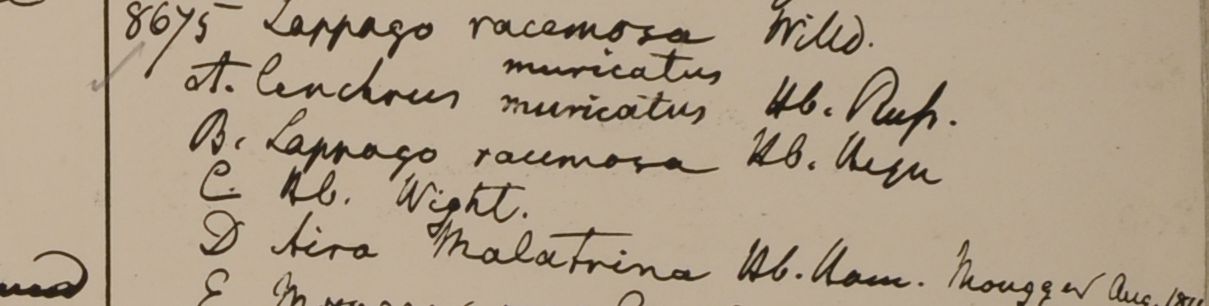 8675 Lappago racemosa Willd.
muricatus
A. Cenchrus muricatus Hb. Russ.
B. Lappago racemosa Hb. Heyn
C. Hb. Wight.
D Aira Malatrina Hb. Ham. Aug.
E